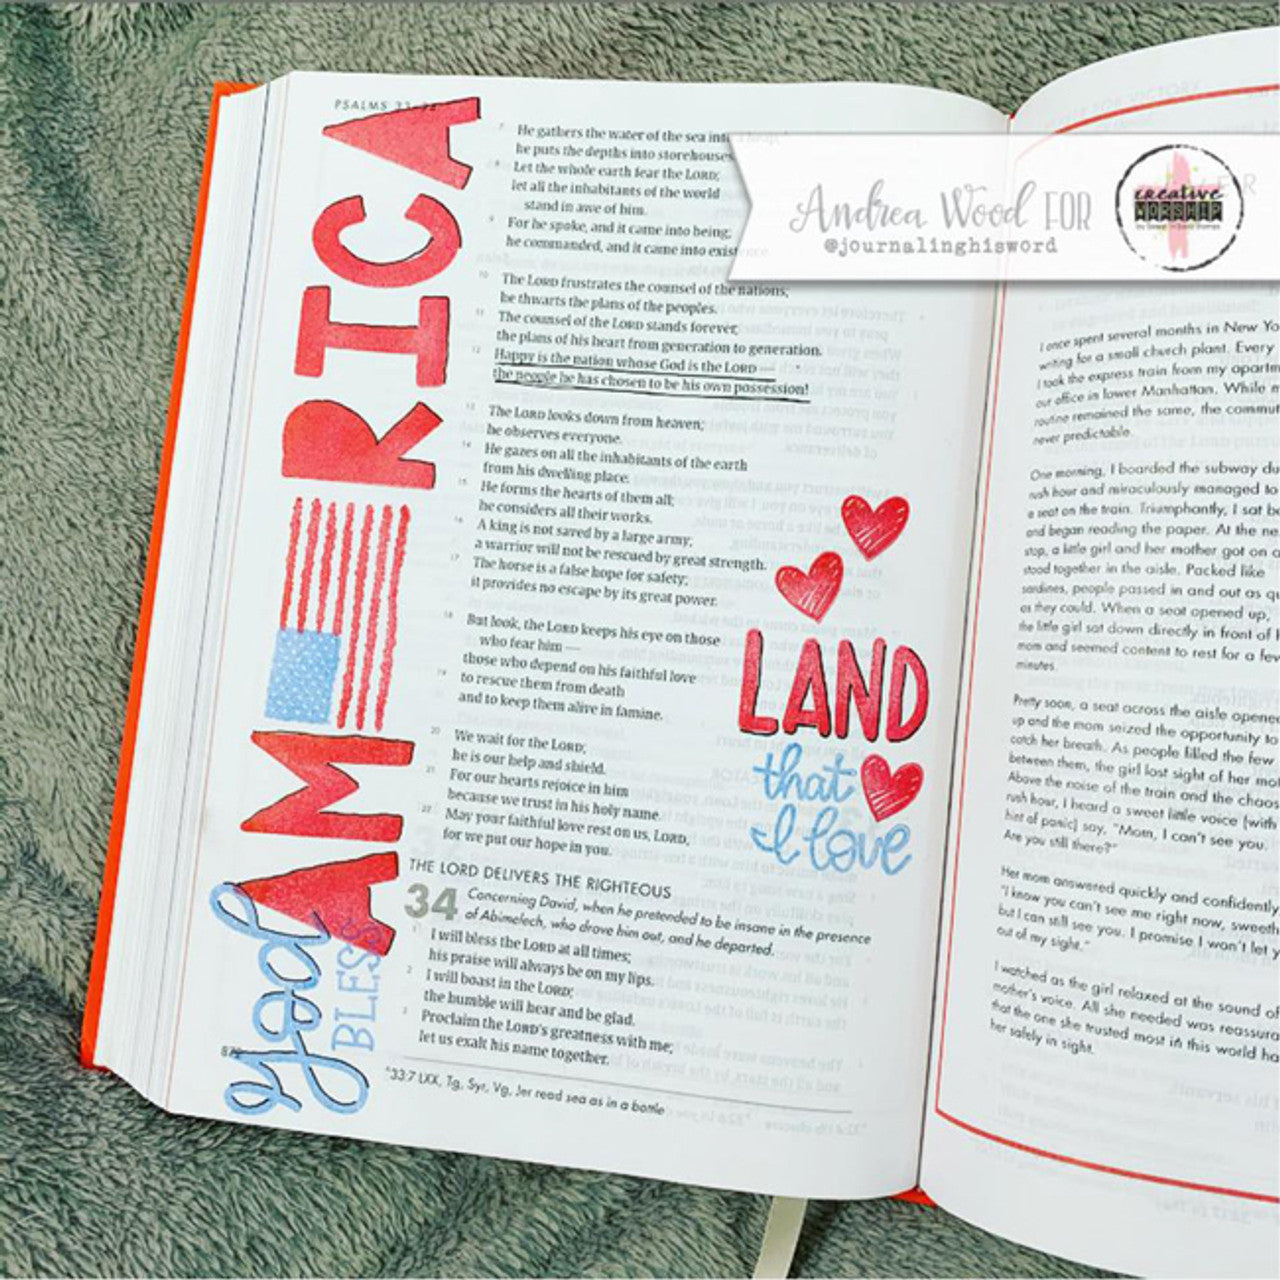 PSALMS 33
AM RICA
god
BLESS
He gathers the water of the sea into a heap;
he puts the depths into storehouses.
8 Let the whole earth fear the LORD;
let all the inhabitants of the world
stand in awe of him.
9 For he spoke, and it came into being;
he commanded, and it came into existence.
10 The LORD frustrates the counsel of the nations;
he thwarts the plans of the peoples.
11 The counsel of the LORD stands forever,
the plans of his heart from generation to generation.
12 Happy is the nation whose God is the LORD —
the people he has chosen to be his own possession!
13 The LORD looks down from heaven;
he observes everyone.
14 He gazes on all the inhabitants of the earth
from his dwelling place.
15 He forms the hearts of them all;
he considers all their works.
16 A king is not saved by a large army;
a warrior will not be rescued by great strength.
17 The horse is a false hope for safety;
it provides no escape by its great power.
18 But look, the LORD keeps his eye on those
who fear him —
those who depend on his faithful love
19 to rescue them from death
and to keep them alive in famine.
20 We wait for the LORD;
he is our help and shield.
21 For our hearts rejoice in him
because we trust in his holy name.
22 May your faithful love rest on us, LORD,
for we put our hope in you.
THE LORD DELIVERS THE RIGHTEOUS
34 Concerning David, when he pretended to be insane in the presence
of Abimelech, who drove him out, and he departed.
1 I will bless the LORD at all times;
his praise will always be on my lips.
2 I will boast in the LORD;
the humble will hear and be glad.
3 Proclaim the LORD's greatness with me;
let us exalt his name together.
33:7 LXX, Tg, Syr, Vg, Jer read sea as in a bottle
LAND
that
I love
Andrea Wood FOR
@journalinghisword
creative
WORSHIP
I once spent several months in New Yo
writing for a small church plant. Every
I took the express train from my apartm
our office in lower Manhattan. While m
routine remained the same, the commu
never predictable.
One morning, I boarded the subway du
rush hour and miraculously managed to
a seat on the train. Triumphantly, I sat b
and began reading the paper. At the ne
stop, a little girl and her mother got on a
stood together in the aisle. Packed like
sardines, people passed in and out as qu
as they could. When a seat opened up,
the little girl sat down directly in front of
mom and seemed content to rest for a few
minutes.
Pretty soon, a seat across the aisle opene
up and the mom seized the opportunity to
catch her breath. As people filled the few
between them, the girl lost sight of her mo
Above the noise of the train and the chaos
rush hour, I heard a sweet little voice (with
hint of panic) say, "Mom, I can't see you.
Are you still there?"
Her mom answered quickly and confidently
"I know you can't see me right now, sweeth
but I can still see you. I promise I won't let y
out of my sight."
I watched as the girl relaxed at the sound of
mother's voice. All she needed was reassura
that the one she trusted most in this world ha
her safely in sight.